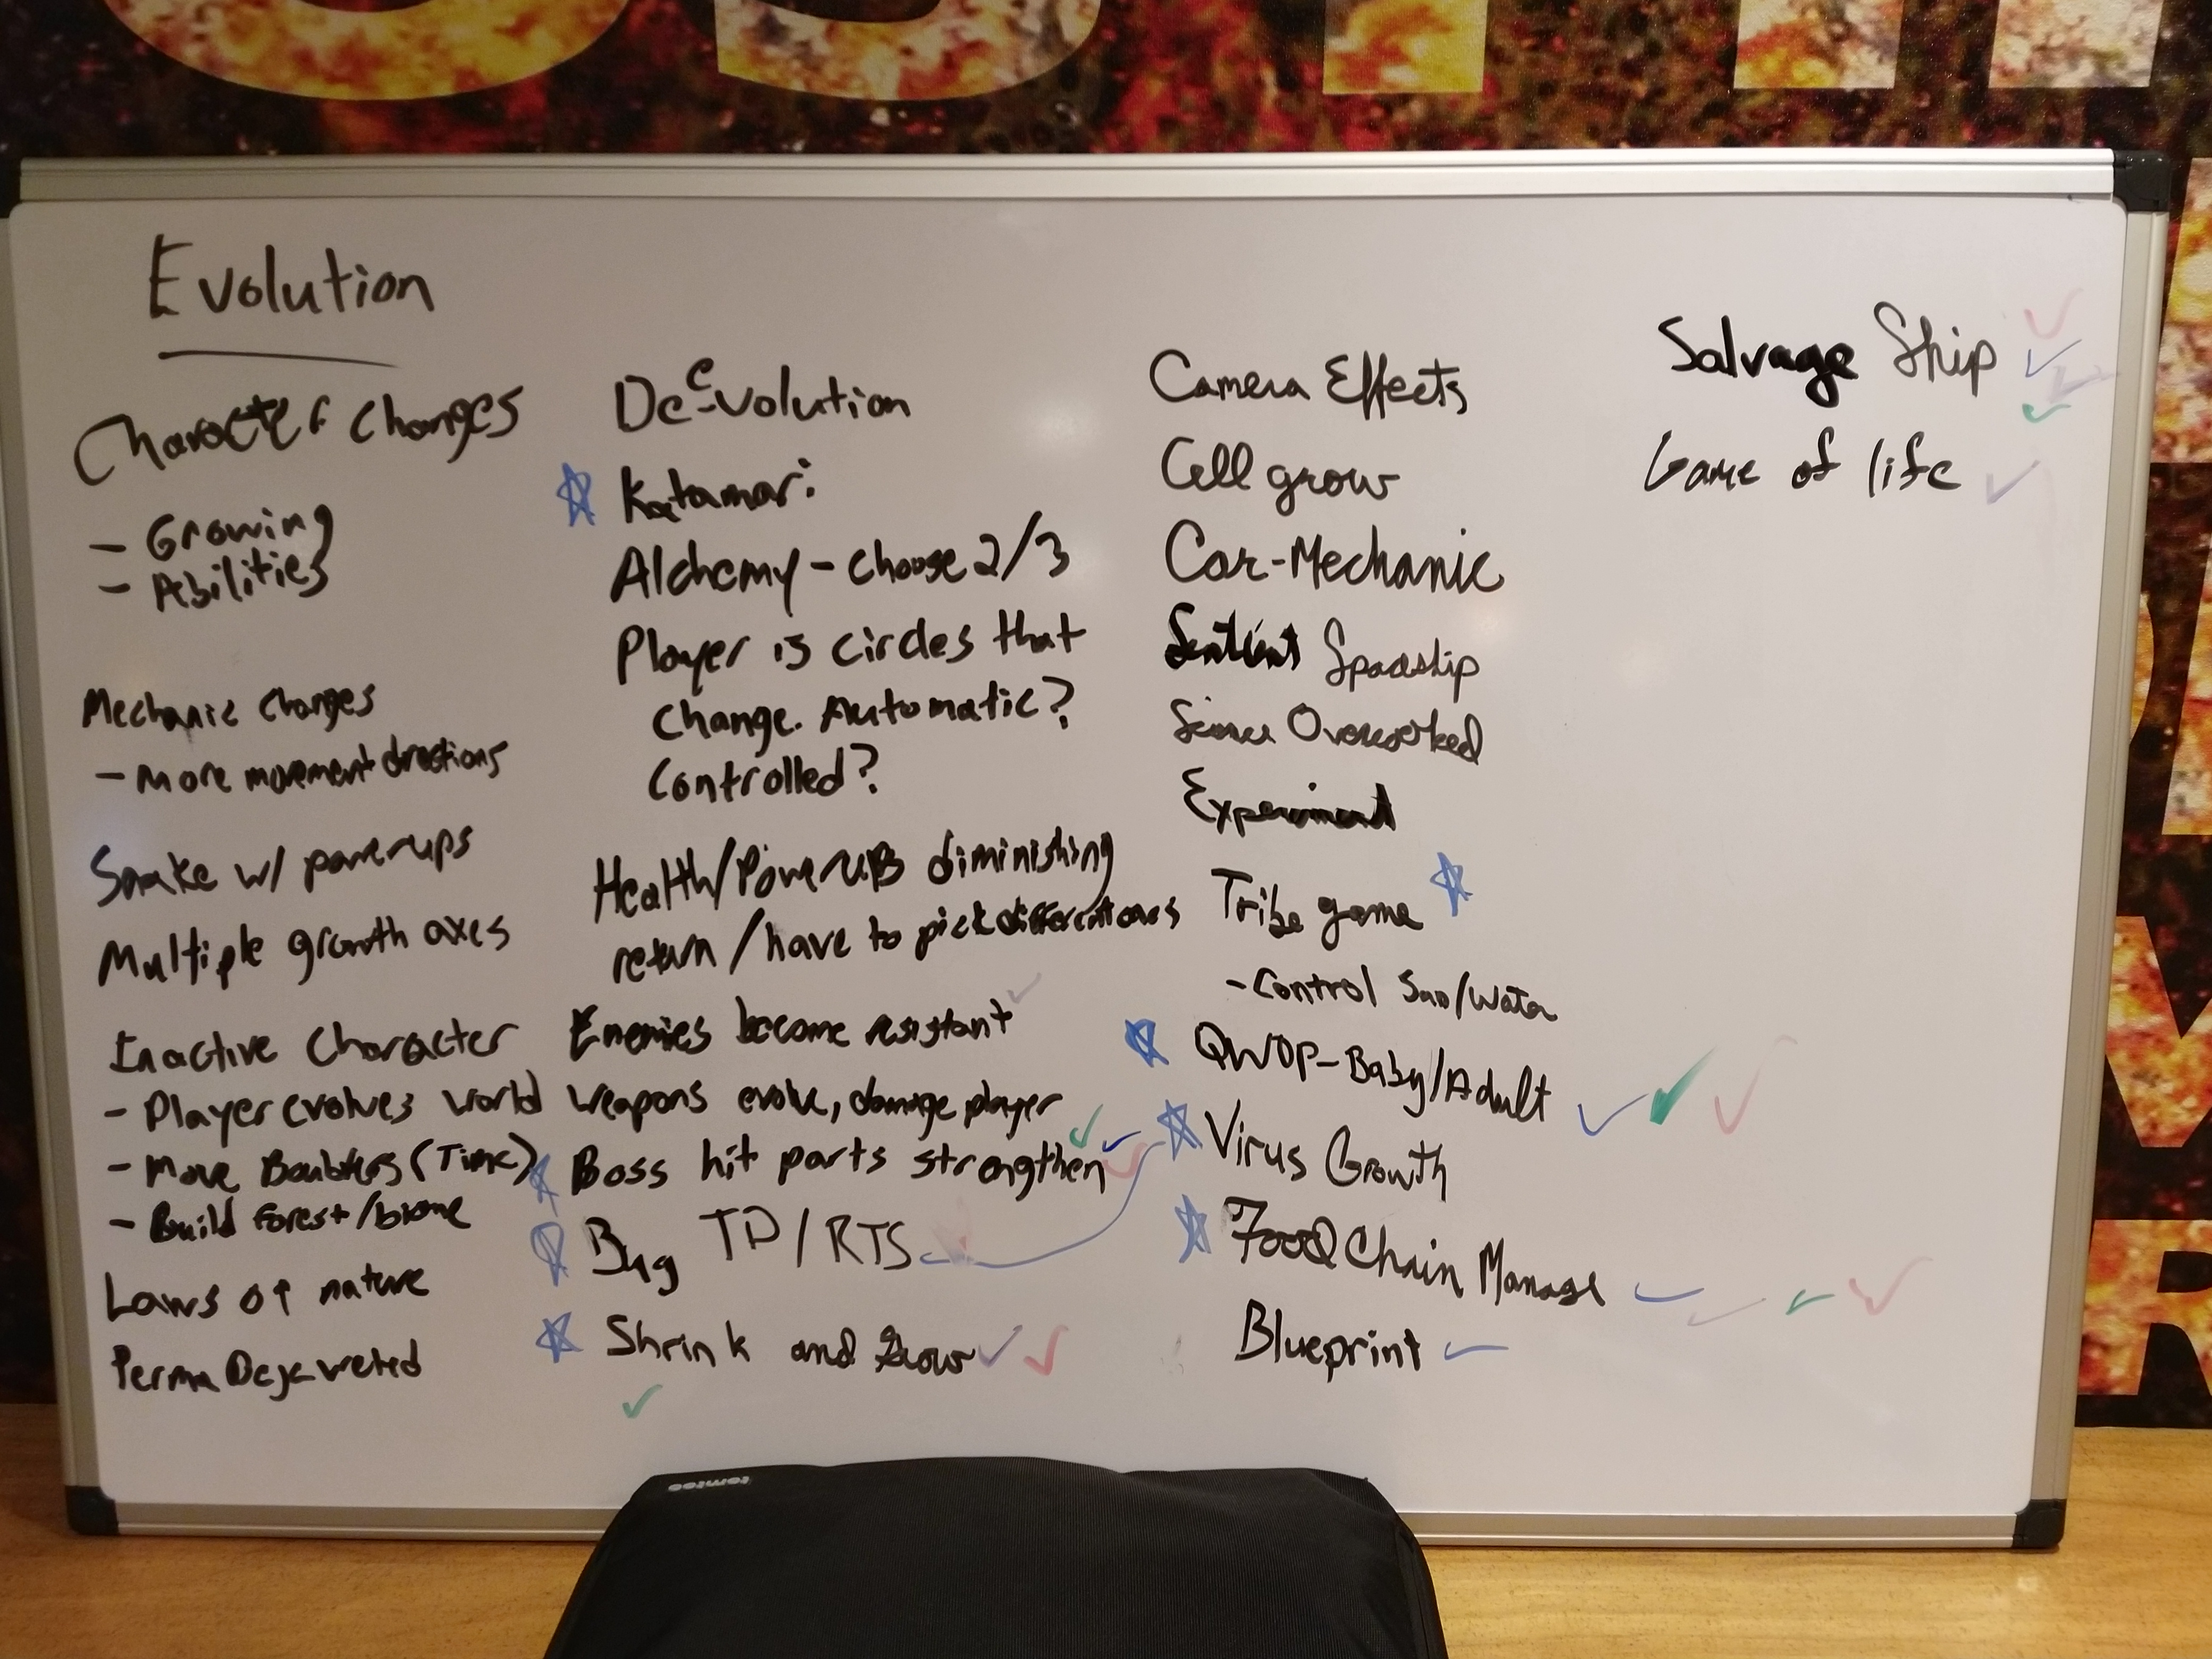 Evolution
Character changes
- Growing
- Abilities
Mechanic changes
- More movement directions
Snake w/ powerups
Multiple growth axes
Inactive Character
- Player evolves world
- Move (Time)
- Build forest/biome
Laws of nature
Perma
De-evolution
Katamari
Alchemy - choose 2/3
Player is circles that
change. Automatic?
Controlled?
Health/Powerups diminishing
return/have to pick different ones
Enemies become resistant
Weapons evolve, damage player
Boss hit parts strengthen
Bug TD/RTS
Shrink and Grow
Camera Effects
Cell grow
Car-Mechanic
Sentient Spaceship
Science Overworked
Experiment
Tribe game
- Control Sun/Water
QWOP-Baby/Adult
Virus Growth
Food Chain Manage
Blueprint
Salvage Ship
Game of life
tomtoc